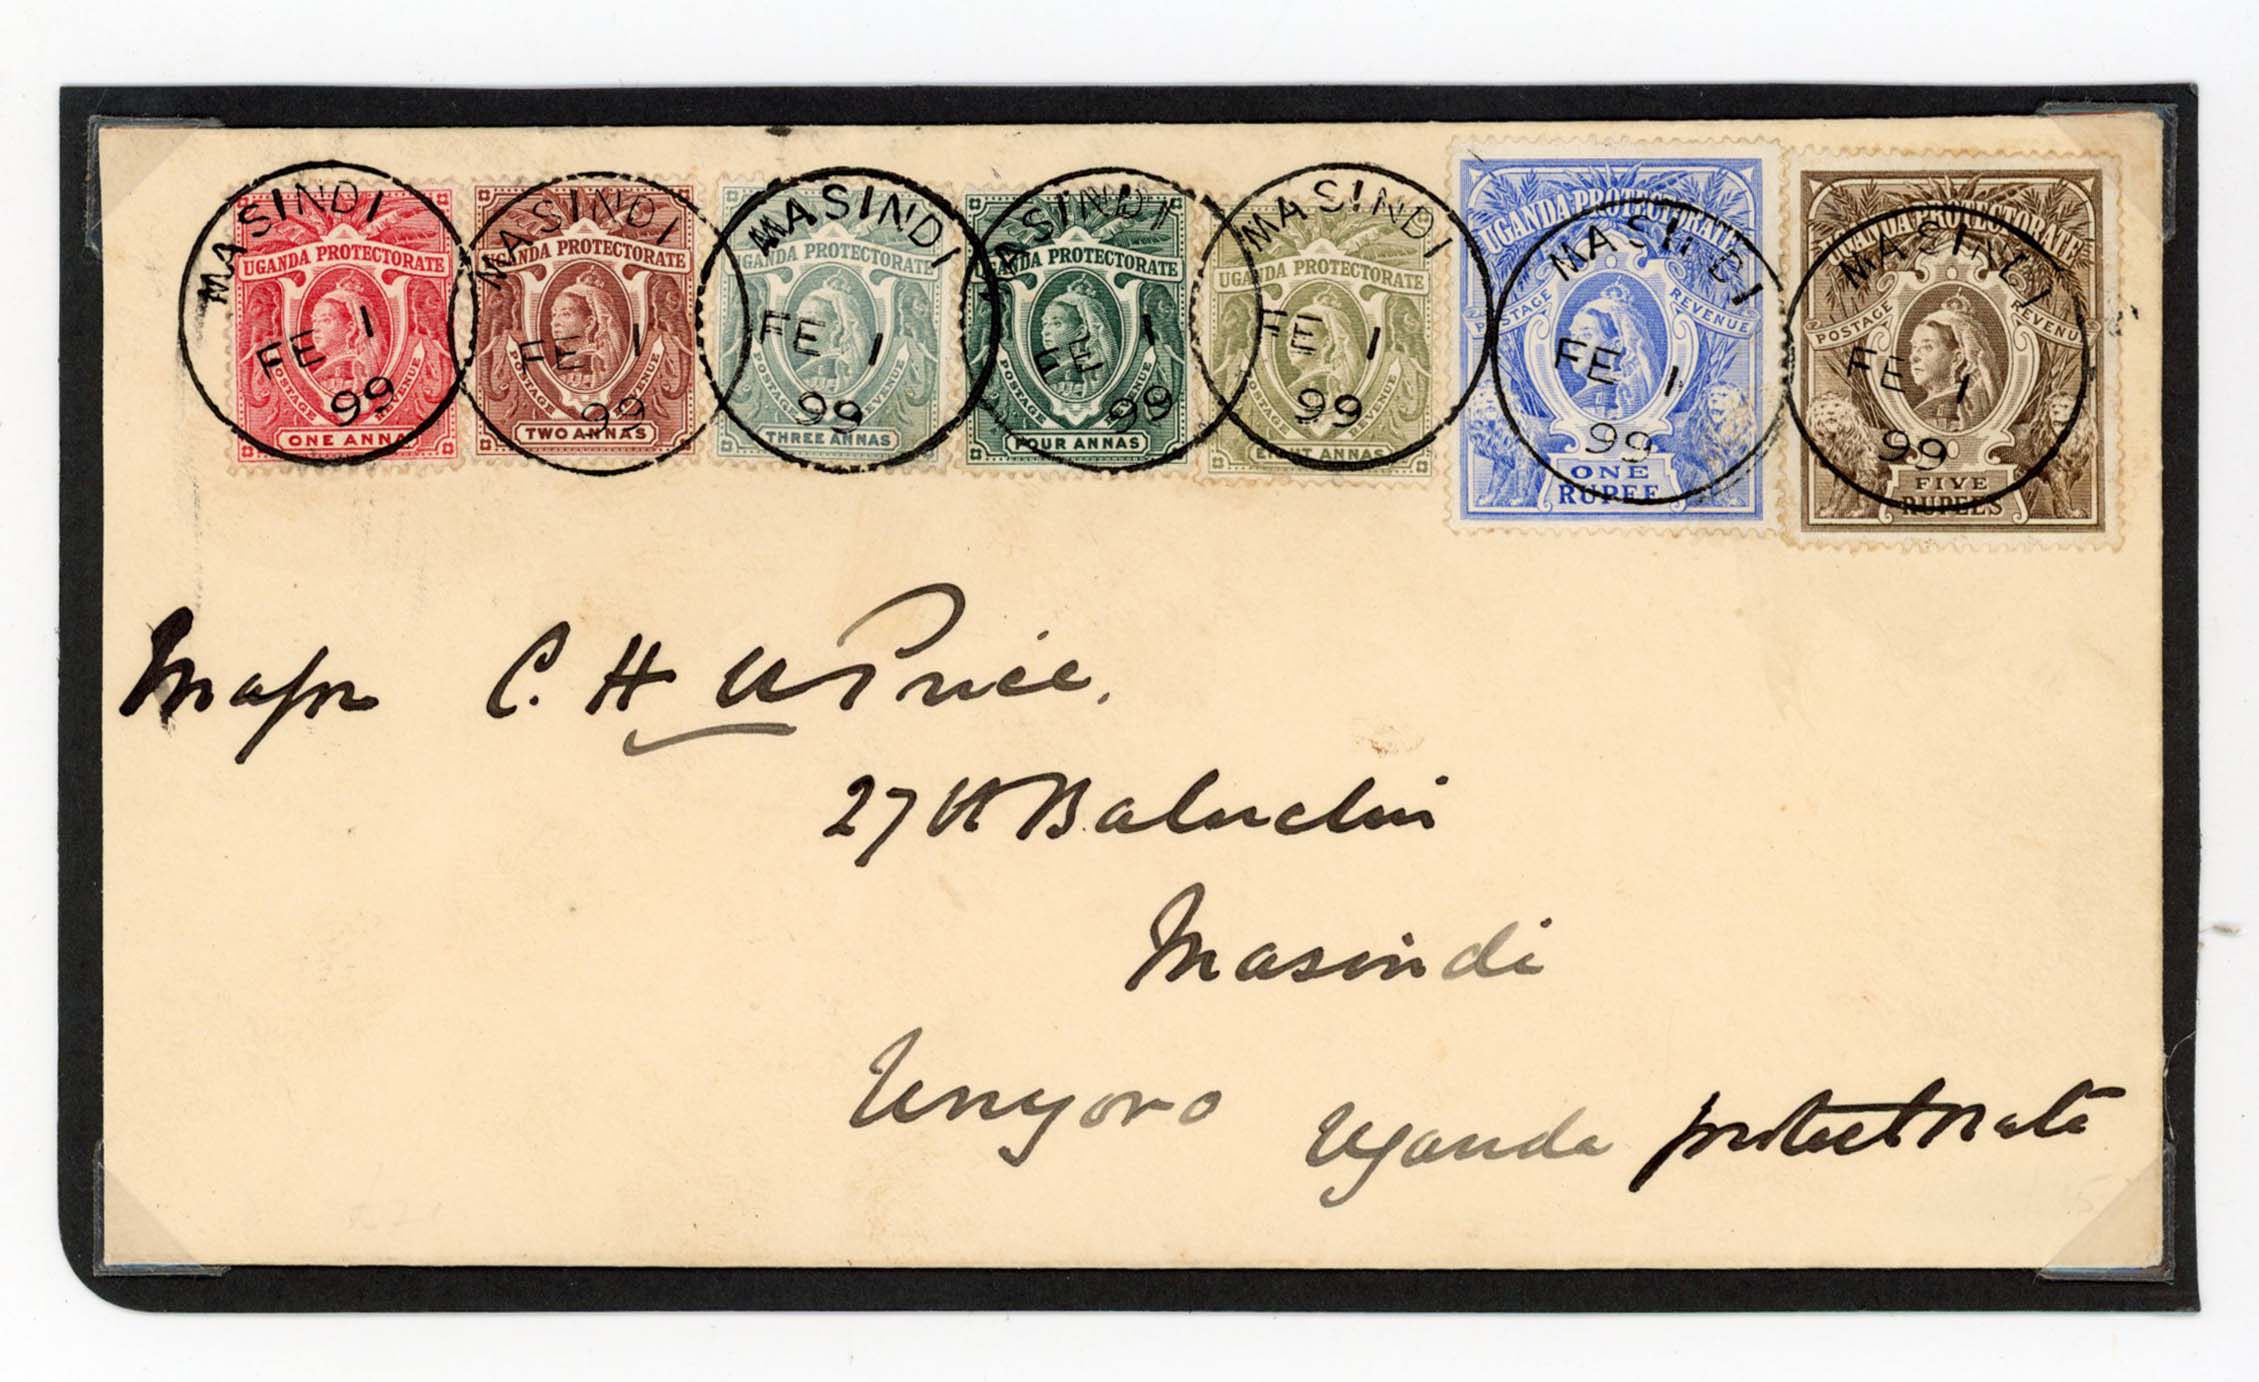 MASINDI FE 1 99
UGANDA PROTECTORATE
POSTAGE REVENUE
ONE ANNA
MASINDI FE 1 99
UGANDA PROTECTORATE
POSTAGE REVENUE
TWO ANNAS
MASINDI FE 1 99
UGANDA PROTECTORATE
POSTAGE REVENUE
THREE ANNAS
MASINDI FE 1 99
UGANDA PROTECTORATE
POSTAGE REVENUE
FOUR ANNAS
MASINDI FE 1 99
UGANDA PROTECTORATE
POSTAGE REVENUE
EIGHT ANNAS
MASINDI FE 1 99
UGANDA PROTECTORATE
POSTAGE REVENUE
ONE
RUPEE
MASINDI FE 1 99
UGANDA PROTECTORATE
POSTAGE REVENUE
FIVE
RUPEES
Major C. H U Price.
27th Baluchis
Masindi
Unyoro Uganda protectorate